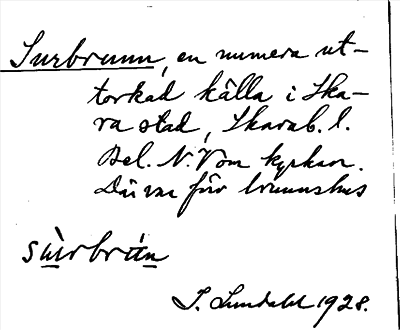 Surbrunn, en numera ut-
torkad källa i Ska-
ra stad, Skarab. l.
Bel. N.V om kyrkan.
Där var förr brunnshus
sùrbrún
S. Lundahl 1928.